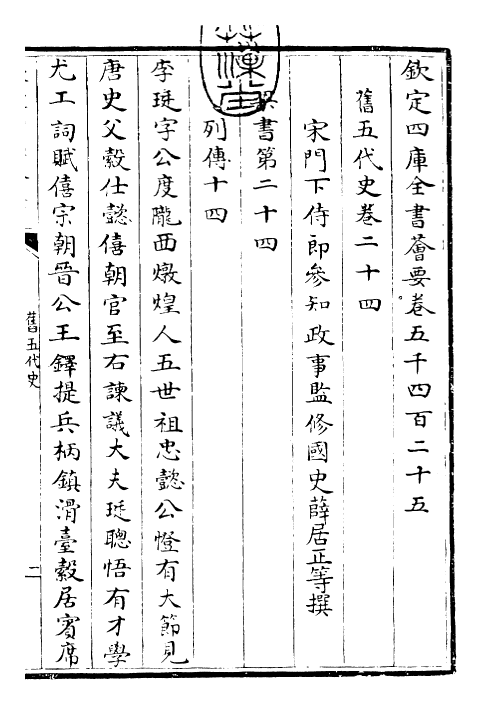 欽定四庫全書薈要卷五千四百二十五
舊五代史卷二十四
宋門下侍郎參知政事監修國史薛居正等撰
梁書第二十四
列傳十四
李珽字公度隴西燉煌人五世祖忠懿公憕有大節見
唐史父縠仕懿僖朝官至右諫議大夫珽聰悟有才學
尤工詞賦僖宗朝晉公王鐸提兵柄鎮滑臺縠居賓席
舊五代史